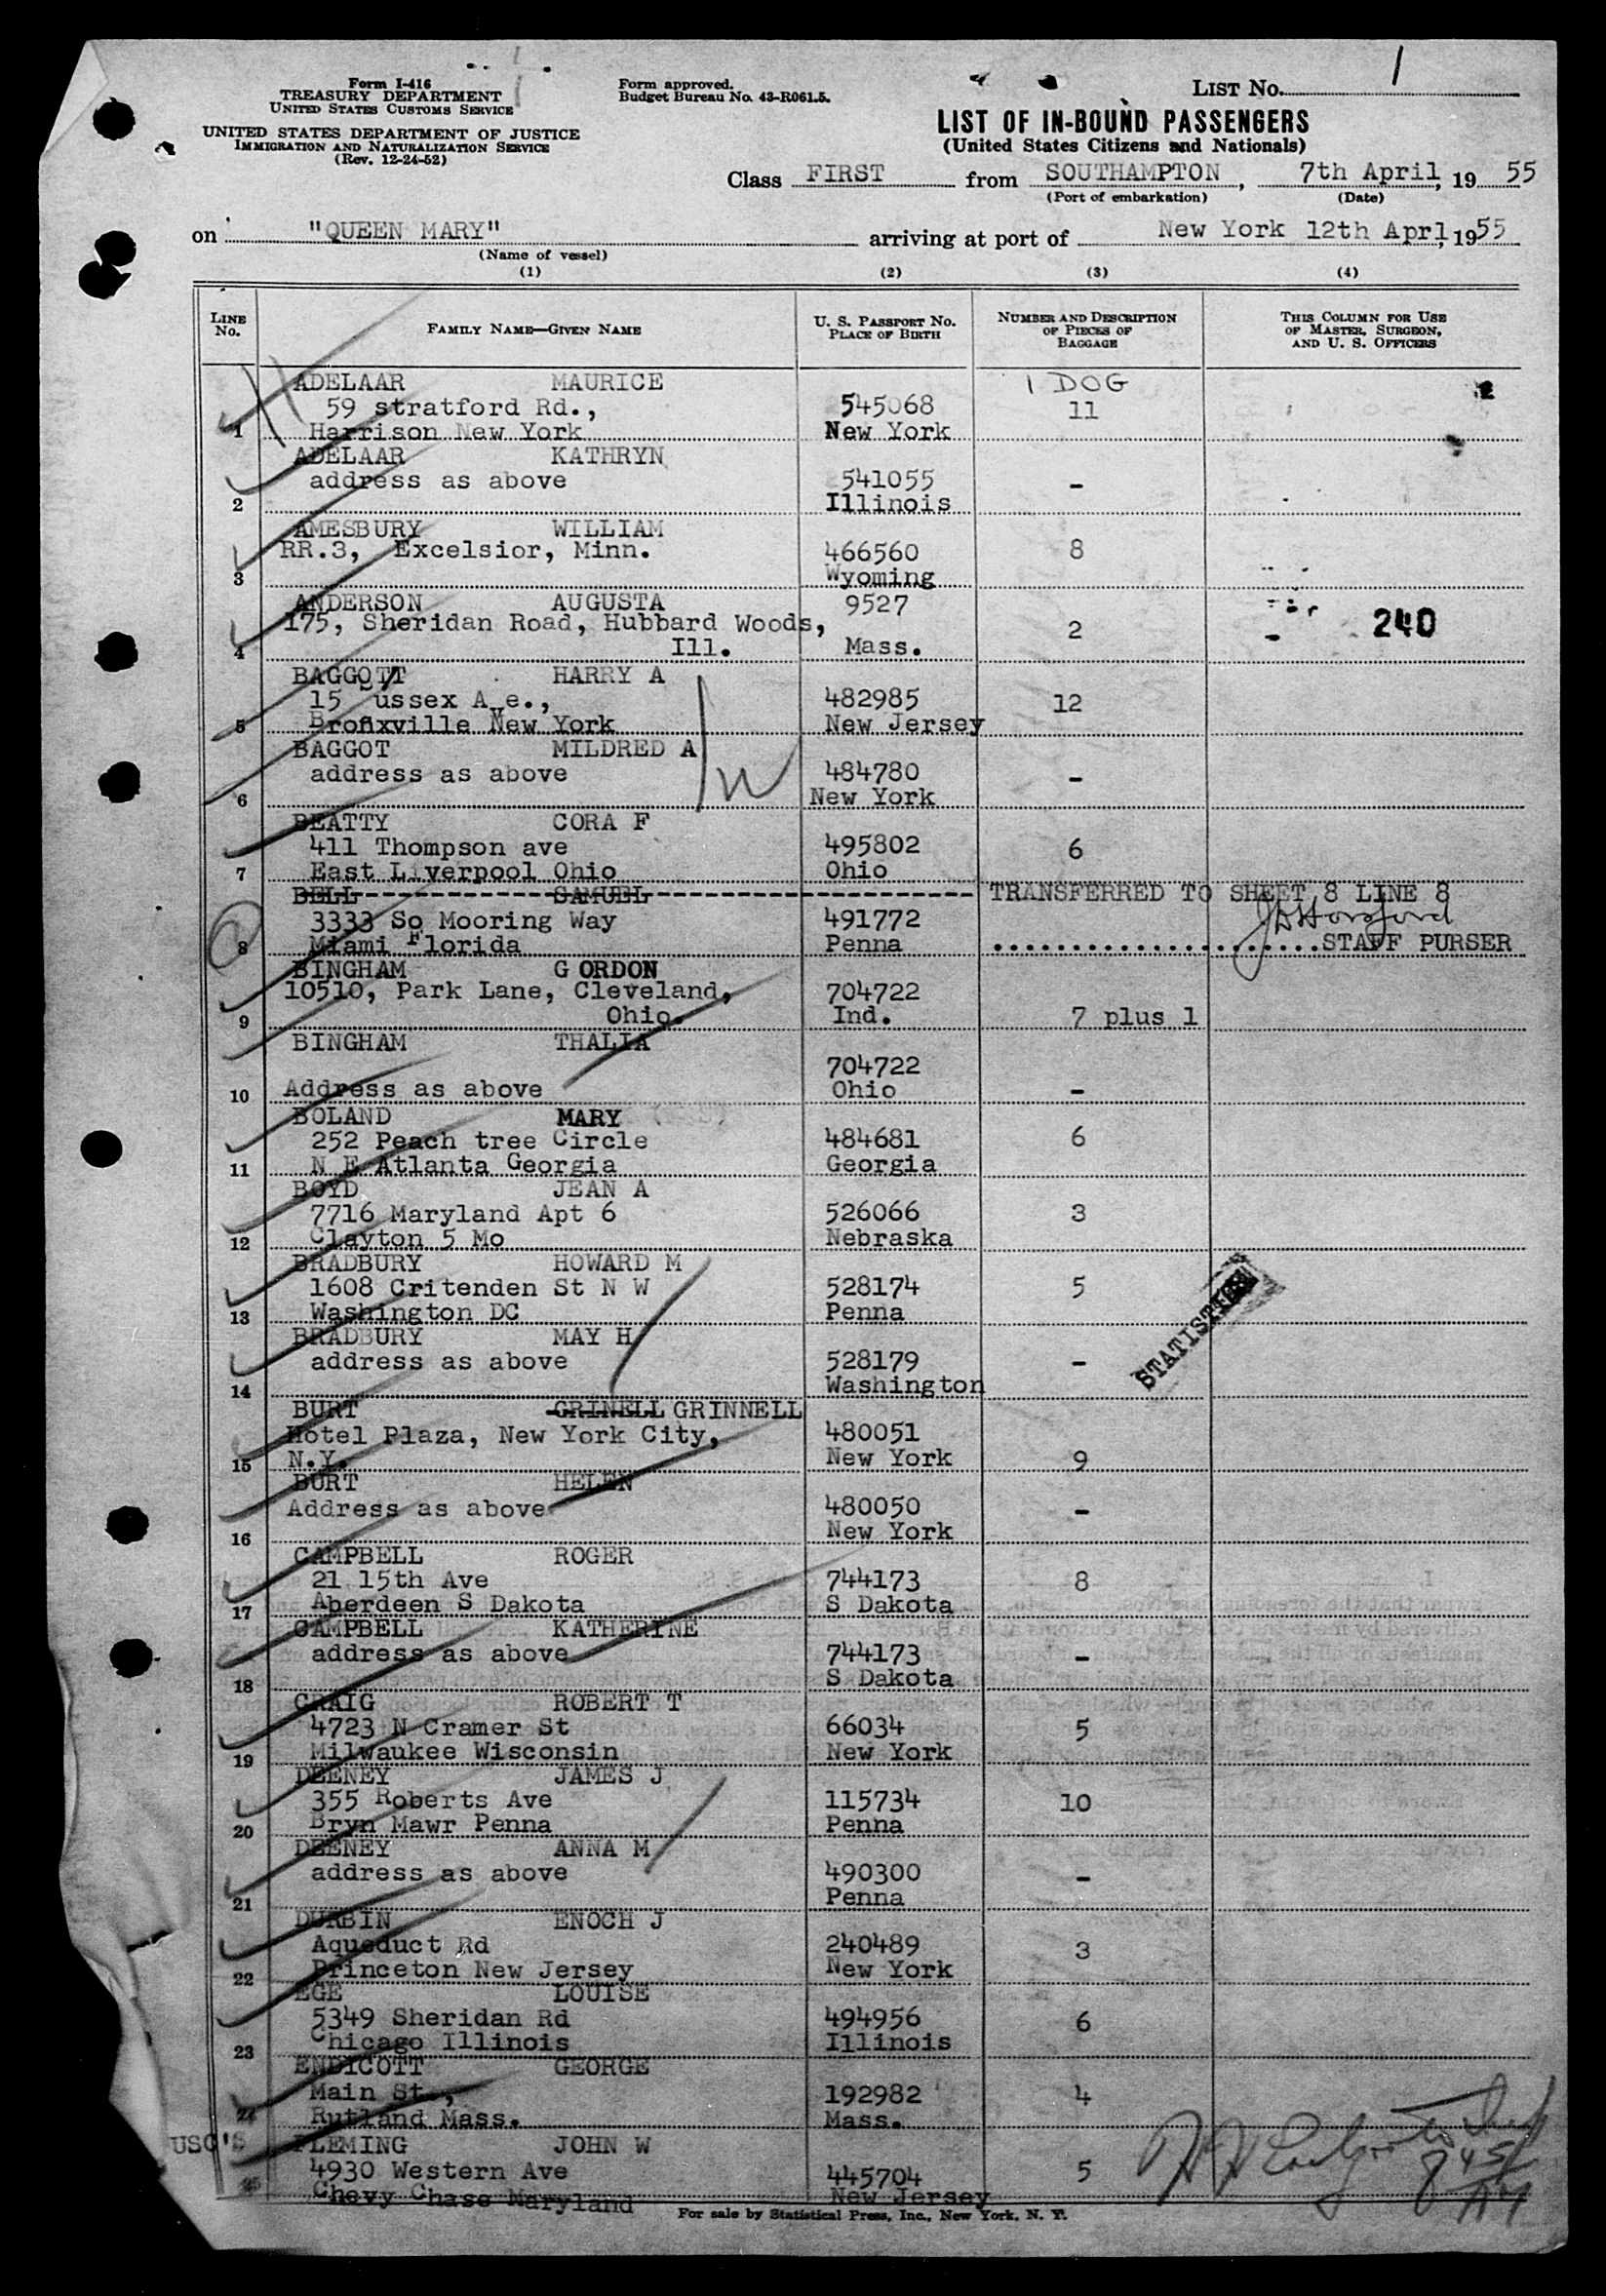 Form I-416
TREASURY DEPARTMENT
UNITED STATES CUSTOMS SERVICE
UNITED STATES DEPARTMENT OF JUSTICE
IMMIGRATION AND NATURALIZATION SERVICE
(Rev. 12-24-52)
Form approved.
Budget Bureau No. 43-R061.5.
LIST NO. 1
LIST OF IN-BOUND PASSENGERS
(United States Citizens and Nationals)
Class FIRST from SOUTHAMPTON, 7th April, 19 55
(Port of embarkation) (Date)
on "QUEEN MARY" arriving at port of New York 12th Aprl, 1955
(Name of vessel)
(1) (2) (3) (4)
LINE No. FAMILY NAME—GIVEN NAME U. S. PASSPORT NO. PLACE OF BIRTH NUMBER AND DESCRIPTION OF PIECES OF BAGGAGE THIS COLUMN FOR USE OF MASTER, SURGEON, AND U. S. OFFICERS
ADELAAR MAURICE 1 DOG
59 stratford Rd., 545068 11
1 Harrison New York New York
ADELAAR KATHRYN
address as above 541055 -
2 Illinois
AMESBURY WILLIAM
RR.3, Excelsior, Minn. 466560 8
3 Wyoming
ANDERSON AUGUSTA 9527
175, Sheridan Road, Hubbard Woods, 2 240
4 Ill. Mass.
BAGGOTT HARRY A
15 ussex A e., 482985 12
5 Bronxville New York New Jersey
BAGGOT MILDRED A
address as above 484780 -
6 New York
W
BEATTY CORA F
411 Thompson ave 495802 6
7 East Liverpool Ohio Ohio
BELL SAMUEL TRANSFERRED TO SHEET 8 LINE 8
3333 So Mooring Way 491772
8 Miami Florida Penna STAFF PURSER
BINGHAM G ORDON
10510, Park Lane, Cleveland, 704722
9 Ohio. Ind. 7 plus 1
BINGHAM THALIA
704722
10 Address as above Ohio -
BOLAND MARY
252 Peach tree Circle 484681 6
11 N E Atlanta Georgia Georgia
BOYD JEAN A
7716 Maryland Apt 6 526066 3
12 Clayton 5 Mo Nebraska
BRADBURY HOWARD M
1608 Critenden St N W 528174 5
13 Washington DC Penna
BRADBURY MAY H
address as above 528179 -
14 Washington
STATISTICS
BURT GRINELL GRINNELL
Hotel Plaza, New York City, 480051
15 N.Y. New York 9
BURT HELEN
Address as above 480050 -
16 New York
CAMPBELL ROGER
21 15th Ave 744173 8
17 Aberdeen S Dakota S Dakota
CAMPBELL KATHERINE
address as above 744173 -
18 S Dakota
CRAIG ROBERT T
4723 N Cramer St 66034 5
19 Milwaukee Wisconsin New York
DEENEY JAMES J
355 Roberts Ave 115734 10
20 Bryn Mawr Penna Penna
DEENEY ANNA M
address as above 490300 -
21 Penna
DURBIN ENOCH J
Aqueduct Rd 240489 3
22 Princeton New Jersey New York
EGE LOUISE
5349 Sheridan Rd 494956 6
23 Chicago Illinois Illinois
ENDICOTT GEORGE
Main St., 192982 4
24 Rutland Mass. Mass.
USC'S FLEMING JOHN W
4930 Western Ave 445704 5
25 Chevy Chase Maryland New Jersey
For sale by Statistical Press, Inc., New York, N. Y.